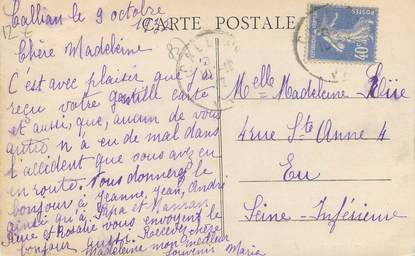 Callian le 9 octobre
CARTE POSTALE
Chère Madeleine
C'est avec plaisir que j'ai
reçu votre gentille carte
et aussi, que, aucun de vous
autre n'a eu de mal dans
l'accident que vous avez eu
en route. Vous donnerez le
bonjour à Jeanne, Jean, André
ainsi qu'à Papa et Maman.
et Rosalie vous envoyent le
bonjour aussi. Recevez chère
Madeleine mon meilleur
souvenir Marie
40c
Melle Madeleine
4 rue Ste Anne 4
Eu
Seine-Inférieure